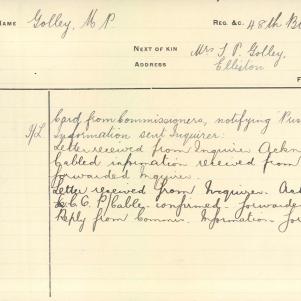 NAME Golley, M P. REG. &C. 48th B
NEXT OF KIN Mrs T. P. Golley,
ADDRESS Elliston
F
H/L Card from Commissioners, notifying
Information sent Inquirer:
Letter received from Inquire Ackn
Cabled information received from
forwarded Inquirer.
Letter received from Inquirer.
C.C. P Cable confirmed. forwarde
Reply from Commis. Information for